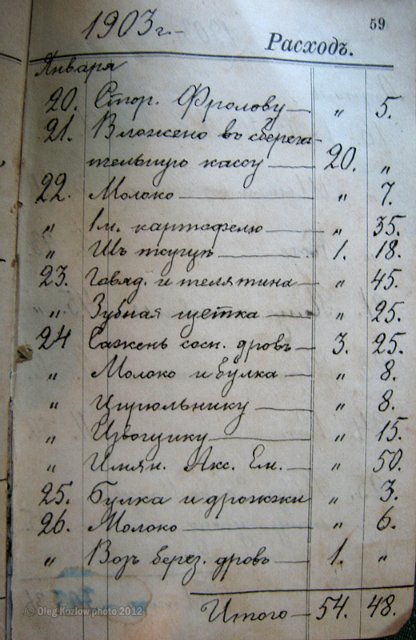 59
1903 г.
Расходъ.
Января
20. Стор. Фролову — „ 5.
21. Вложено въ сберега-
тельную кассу — 20. „
22. Молоко — „ 7.
„ 1 м. картофелю — „ 35.
„ 1. 18.
23. Говяд. и телятина — „ 45.
„ Зубная щетка — „ 25.
24 Сажень сосн. дровъ — 3. 25.
„ Молоко и булка — „ 8.
„ Цирюльнику — „ 8.
„ Извощику — „ 15.
„ Имян. Акс. Ем. — „ 50.
25. Булка и дрожжи „ 3.
26. Молоко — „ 6.
„ Возъ берез. дровъ — 1. „
Итого — 54. 48.
© Oleg Kozlow photo 2012